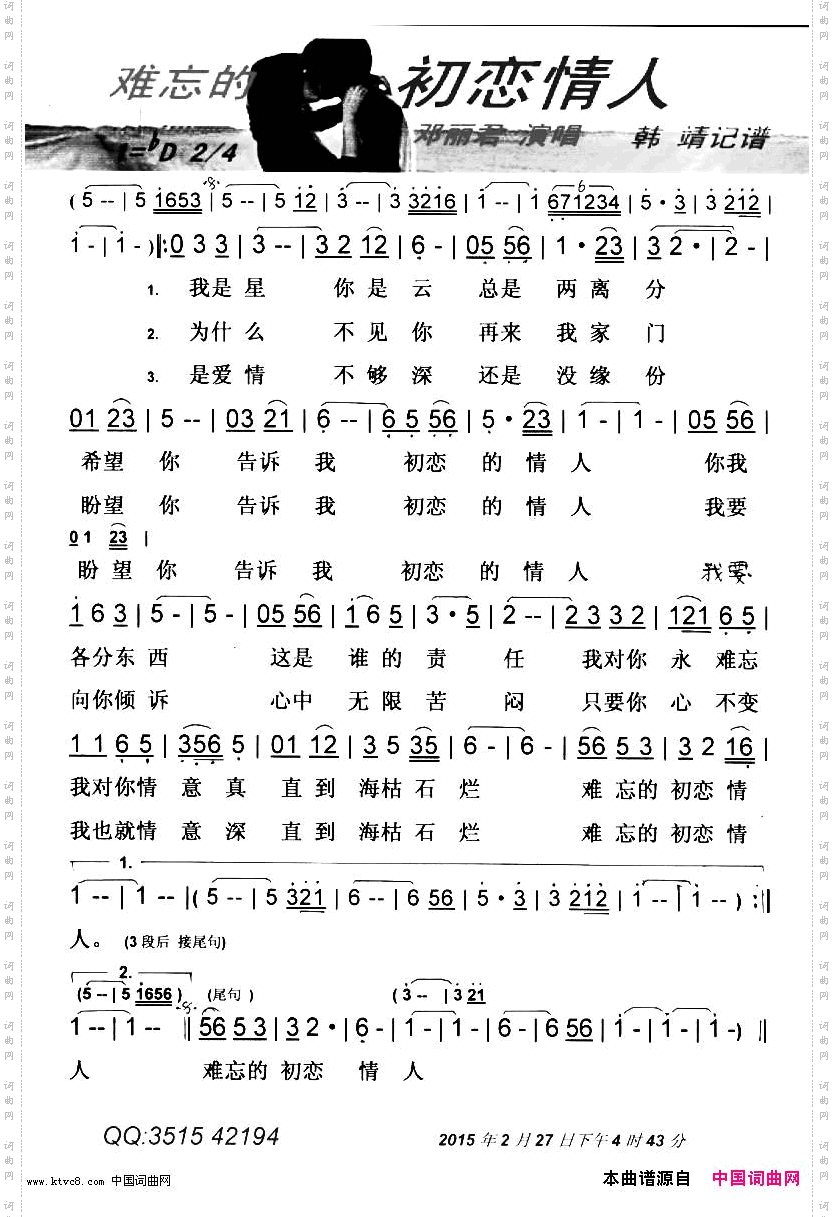 难忘的 初恋情人
1=♭D 2/4 邓丽君 演唱 韩 靖记谱
( 5 -- | 5 1653 | 5 -- | 5 12 | 3 -- | 3 3216 | 1 -- | 1 671234 | 5 · 3 | 3 212 |
1 - | 1 - ) |: 0 3 3 | 3 -- | 3 2 12 | 6 - | 05 56 | 1 · 23 | 3 2 · | 2 - |
1. 我是 星 你 是 云 总是 两 离 分
2. 为什 么 不 见 你 再来 我 家 门
3. 是爱 情 不 够 深 还是 没 缘 份
01 23 | 5 -- | 03 21 | 6 -- | 6 5 56 | 5 · 23 | 1 - | 1 - | 05 56 |
希望 你 告诉 我 初恋 的 情 人 你我
盼望 你 告诉 我 初恋 的 情 人 我要
0 1 23 |
盼 望 你 告诉 我 初恋 的 情 人 我要
1 6 3 | 5 - | 5 - | 05 56 | 1 6 5 | 3 · 5 | 2 -- | 2 3 3 2 | 121 6 5 |
各分东 西 这是 谁 的 责 任 我对你 永 难忘
向你倾 诉 心中 无 限 苦 闷 只要你 心 不变
1 1 6 5 | 356 5 | 01 12 | 3 5 35 | 6 - | 6 - | 56 5 3 | 3 2 16 |
我对你情 意 真 直 到 海枯 石 烂 难 忘的 初恋 情
我也就情 意 深 直 到 海枯 石 烂 难 忘的 初恋 情
1.
1 -- | 1 -- |( 5 -- | 5 321 | 6 -- | 6 56 | 5 · 3 | 3 212 | 1 -- | 1 -- ) :||
人。 (3 段后 接尾句)
2.
(5 -- | 5 1656 ) (尾句 ) ( 3 -- | 3 21
1 -- | 1 -- || 56 5 3 | 3 2 · | 6 - | 1 - | 1 - | 6 - | 6 56 | 1 - | 1 - | 1 -) ||
人 难忘的 初恋 情 人
QQ:3515 42194 2015 年 2 月 27 日下午 4 时 43 分
www.ktvc8.com 中国词曲网 本曲谱源自 中国词曲网